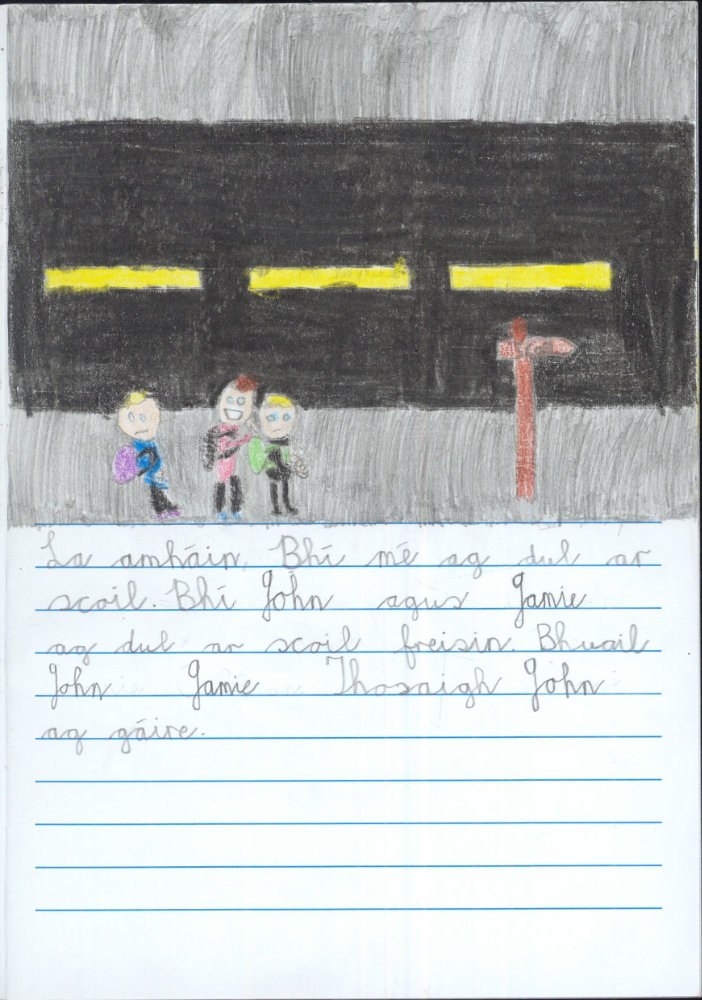 La amháin, Bhí mé ag dul ar
scoil. Bhí John agus Jamie
ag dul ar scoil freisin. Bhuail
John Jamie Thosaigh John
ag gáire.